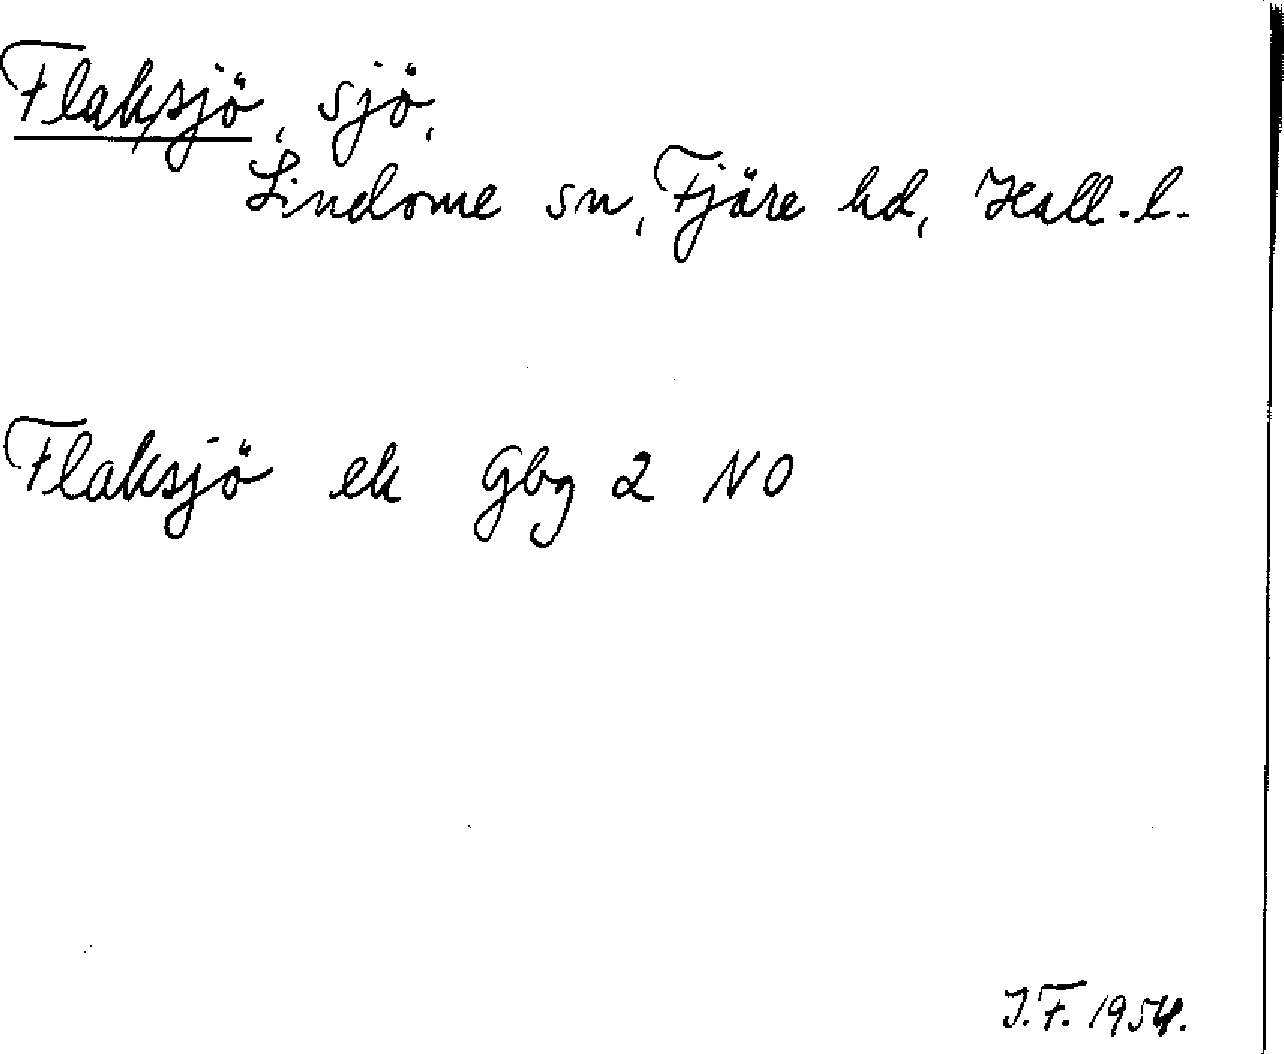 Flaksjö, sjö,
Lindome sn, Fjäre hd, Hall. l.
Flaksjö ek Gbg 2 NO
J.F. 1954.